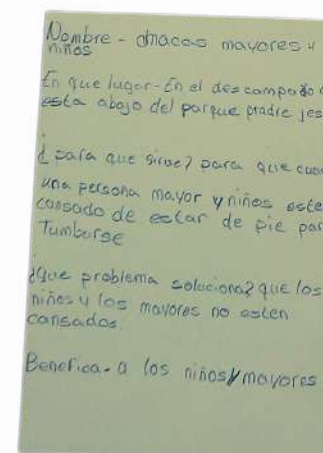 Nombre - amacas mayores y
niños
En que lugar - En el descampado
esta abajo del parque padre jes
¿para que sirve? para que cuan
una persona mayor y niños este
cansado de estar de pie par
Tumbarse
¿Que problema soluciona? que los
niños y los mayores no esten
cansados.
Benefica - a los niños y mayores